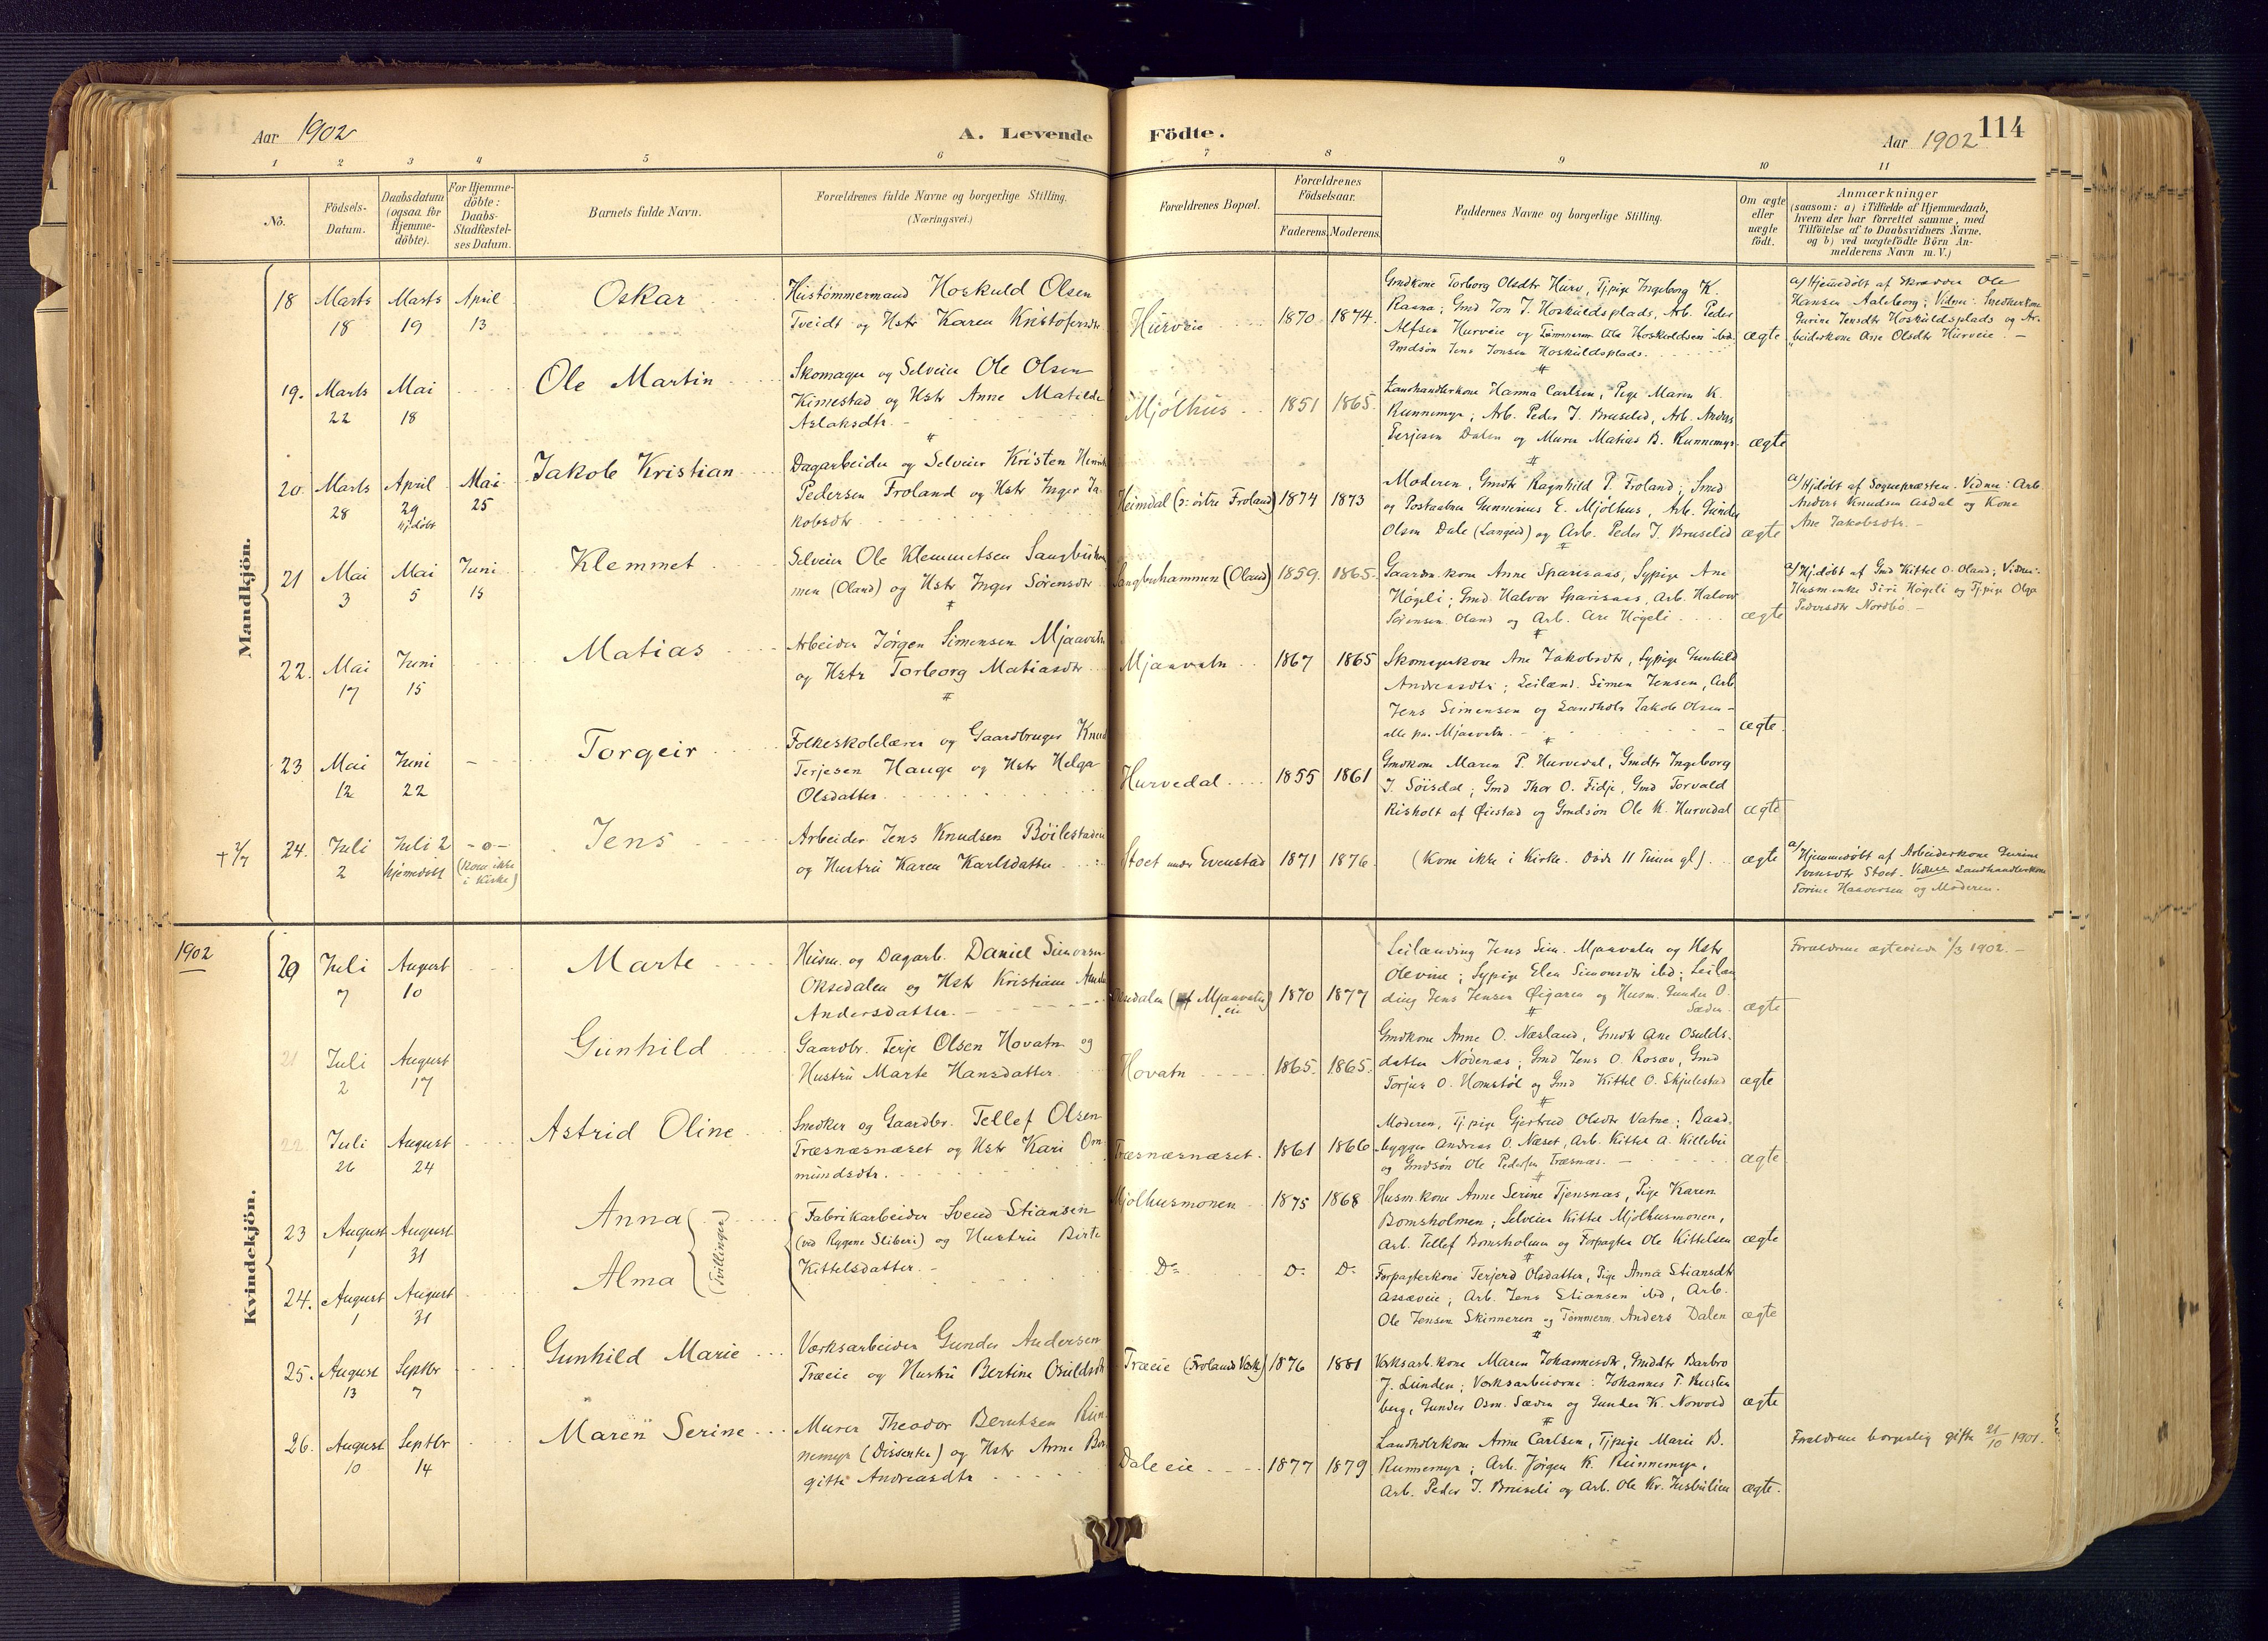 Aar 1902
A. Levende
Födte.
Aar 1902
114
1 2 3 4 5 6 7 8 9 10 11
No.
Födsels-
Datum.
Daabsdatum
(ogsaa for
Hjemme-
döbte).
For Hjemme-
döbte:
Daabs-
Stadfæstel-
ses Datum.
Barnets fulde Navn.
Forældrenes fulde Navne og borgerlige Stilling.
(Næringsvei.)
Forældrenes Bopæl.
Forældrenes
Födselsaar.
Faderens. Moderens.
Faddernes Navne og borgerlige Stilling.
Om ægte
eller
uægte
födt.
Anmærkninger
(saasom: a) i Tilfælde af Hjemmedaab,
hvem der har forrettet samme, med
Tilföielse af to Daabsvidners Navne.
og b) ved uægtefödte Börn An-
melderens Navn m. V.)
Mandkjön.
18 Marts 18 Marts 19 April 13
Oskar
Hustømmermand Hoskuld Olsen
Tveidt og Hstr Karen Kristofersdtr
Hurveie
1870 1874
Gmdkone Torborg Olsdtr Hurv, Tj.pige Ingeborg K.
Rasna; Gmd Jon J. Hoskuldsplads, Arb. Peder
Alfsen Hurveie og Tømmerm. Ole Hoskuldsen ibd.
Gmdsøn Jens Jonsen Hoskuldsplads.
ægte
a/ Hjemmedøbt af Skræder Ole
Hansen Aaleborg; Vidner: Snedkerkone
Gurine Jensdtr Hoskuldsplads og Ar-
beiderkone Ane Olsdtr Hurveie. —
19. Marts 22 Mai 18
Ole Martin
Skomager og Selveier Ole Olsen
Kimestad og Hstr Anne Matilde
Aslaksdtr. -
Mjølhus
1851 1865.
Landhandlerkone Hanna Carlsen, Pige Maren K.
Runnemyr; Arb. Peder J. Bruselid, Arb. Anders
Terjesen Dalen og Murer Matias B. Runnemyr.
ægte
20. Marts 28 April 29 hj.døbt Mai 25
Jakob Kristian
Dagarbeider og Selveier Kristen Henrik
Pedersen Froland og Hstr Inger Ja-
kobsdtr
Heimdal (ɔ: østre Froland)
1874 1873
Moderen, Gmdtr Ragnhild P. Froland; Smed
og Postaabner Gunnerius E. Mjølhus, Arb. Gunder
Olsen Dale (Langeid) og Arb. Peder J. Bruselid
ægte
a/ Hj.døbt af Sognepræsten. Vidner: Arb.
Anders Knudsen Asdal og Kone
Ane Jakobsdtr. -
21 Mai 3 Mai 5 Juni 15
Klemmet
Selveier Ole Klemmetsen Sangbuham
men (Oland) og Hstr Inger Sørensdtr
Sangbuhammen (Oland)
1859. 1865.
Gaardm.kone Anne Sparsaas, Sypige Ane
Høgeli; Gmd. Halvor Sparsaas, Arb. Halvor
Sørensen Oland og Arb. Are Høgeli
ægte
a/ Hj.døbt af Gmd Kittel O. Oland; Vidner:
Husm.enke Siri Høgeli og Tj.pige Olga
Pedersdtr Nordbø. -
22. Mai 17 Juni 15
Matias
Arbeider Jørgen Simonsen Mjaavatn
og Hstr Torborg Matiasdtr
Mjaavatn
1867 1865
Skomagerkone Ane Jakobsdtr, Sypige Gunhild
Andreasdtr; Leilænd. Simon Jensen, Arb
Jens Simonsen og Landhdlr Jakob Olsen -
alle paa Mjaavatn. -
ægte.
23 Mai 12 Juni 22
Torgeir
Folkeskolelærer og Gaardbruger Knud
Terjesen Hauge og Hstr Helga
Olsdatter.
Hurvedal
1855 1861
Gmdkone Maren P. Hurvedal, Gmdtr Ingeborg
J. Søisdal; Gmd Thor O. Fidje, Gmd Torvald
Risholt af Øiestad og Gmdsøn Ole K. Hurvedal
ægte
† 2/7 24. Juli 2 Juli 2 hjemedøbt -o- (Kom ikke i Kirke)
Jens
Arbeider Jens Knudsen Bøilestaden
og Hustru Karen Karlsdatter
Stoet under Evenstad
1871 1876.
(Kom ikke i Kirke. Døde 11 Timer gl).
ægte
a/ Hjemmedøbt af Arbeiderkone Gurine
Svensdtr Stoet. Vidner Landhandlerkone
Torine Haaversen og Moderen.
Kvindekjön.
1902
20 Juli 7 August 10
Marte
Husm. og Dagarb. Daniel Simonsen
Oksedalen og Hstr Kristiane
Andersdatter. -
Oksedalen (Mjaavatn) eie
1870 1877
Leilænding Jens Sim. Mjaavatn og Hstr
Olevine; Sypige Elen Simonsdtr ibd; Leilæn
ding Jens Jensen Øigaren og Husm. Gunder O.
Sæder.
ægte
Forældrene ægteviede /3 1902. -
21 Juli 2 August 17
Gunhild
Gaardbr. Terje Olsen Hovatn og
Hustru Marte Hansdatter
Hovatn
1865. 1865.
Gmdkone Anne O. Næsland, Gmdtr Ane Osulds-
datter Nødenæs; Gmd Jens O. Rosæv, Gmd
Torjus O. Homstøl og Gmd Kittel O. Skjulestad
ægte
22. Juli 26 August 24
Astrid Oline
Snedker og Gaardbr. Tellef Olsen
Træsnæsnæset og Hstr Kari Om
mundsdtr.
Træsnæsnæset.
1861 1866
Moderen, Tj.pige Gjertrud Olsdtr Vatne; Baad-
bygger Andreas O. Næset, Arb. Kittel A. Killebu
og Gmdsøn Ole Pedersen Træsnæs. -
ægte
23 August 1 August 31
Anna
(Tvillinger)
Fabrikarbeider Svend Stiansen
(ved Rygene Sliberi) og Hustru Birte
Kittelsdatter. -
Mjølhusmonen
1875 1868
Husm.kone Anne Serine Tjensnæs, Pige Karen
Bomsholmen; Selveier Kittel Mjølhusmonen,
Arb. Tellef Bomsholmen og Forpagter Ole Kittelsen
ægte
24. August 1 August 31
Alma
Do Do Do
Forpagterkone Terjerd Olsdatter, Pige Anna Stiansdtr
Assæveie; Arb. Jens Stiansen ibd, Arb.
Ole Jensen Skinneren og Tømmerm. Anders Dalen
ægte
25. August 13 Septbr 7
Gunhild Marie
Værksarbeider Gunder Andersen
Træeie og Hustru Bertine Osuldsdt
Træeie (Frolands Værk)
1876 1881
Værksarb.kone Maren Johannesdtr, Gmddtr Barbro
J. Lunden; Værksarbeiderne: Johannes T.
berg, Gunder Osm. Sæden og Gunder K. Norvold
ægte
26. August 10 Septbr 14
Maren Serine
Murer Theodor Berntsen Run-
nemyr (Dissenter) og Hstr Anne Bor
gitte Andreasdtr
Dale eie
1877 1879
Landhdlrkone Anne Carlsen, Tj.pige Marie B.
Runnemyr; Arb. Jørgen K. Runnemyr,
Arb. Peder J. Bruseli og Arb. Ole Kr.
ægte.
Forældrene borgerlig gifte 21/10 1901.